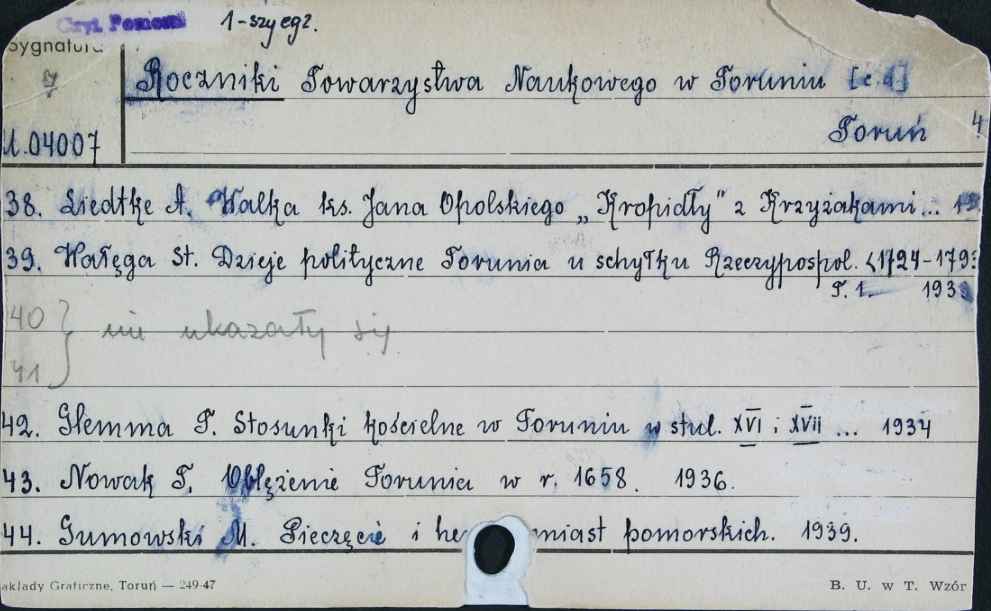 Czyt. Pomorz. 1-szy egz.
Sygnatura
Roczniki Towarzystwa Naukowego w Toruniu [c.d]
U.04007 Toruń 4
38. Liedtke A. Walka ks. Jana Opolskiego „Kropidły” z Krzyżakami... 19
39. Wałęga St. Dzieje polityczne Torunia u schyłku Rzeczypospol. <1724-179
T. 1. 193
40 } nie ukazały się
41
42. Glemma T. Stosunki kościelne w Toruniu w stul. XVI i XVII ... 1934
43. Nowak T. Oblężenie Torunia w r. 1658. 1936.
44. Gumowski M. Pieczęcie i he miast pomorskich. 1939.
akłady Graficzne, Toruń — 249-47 B. U. w T. Wzór